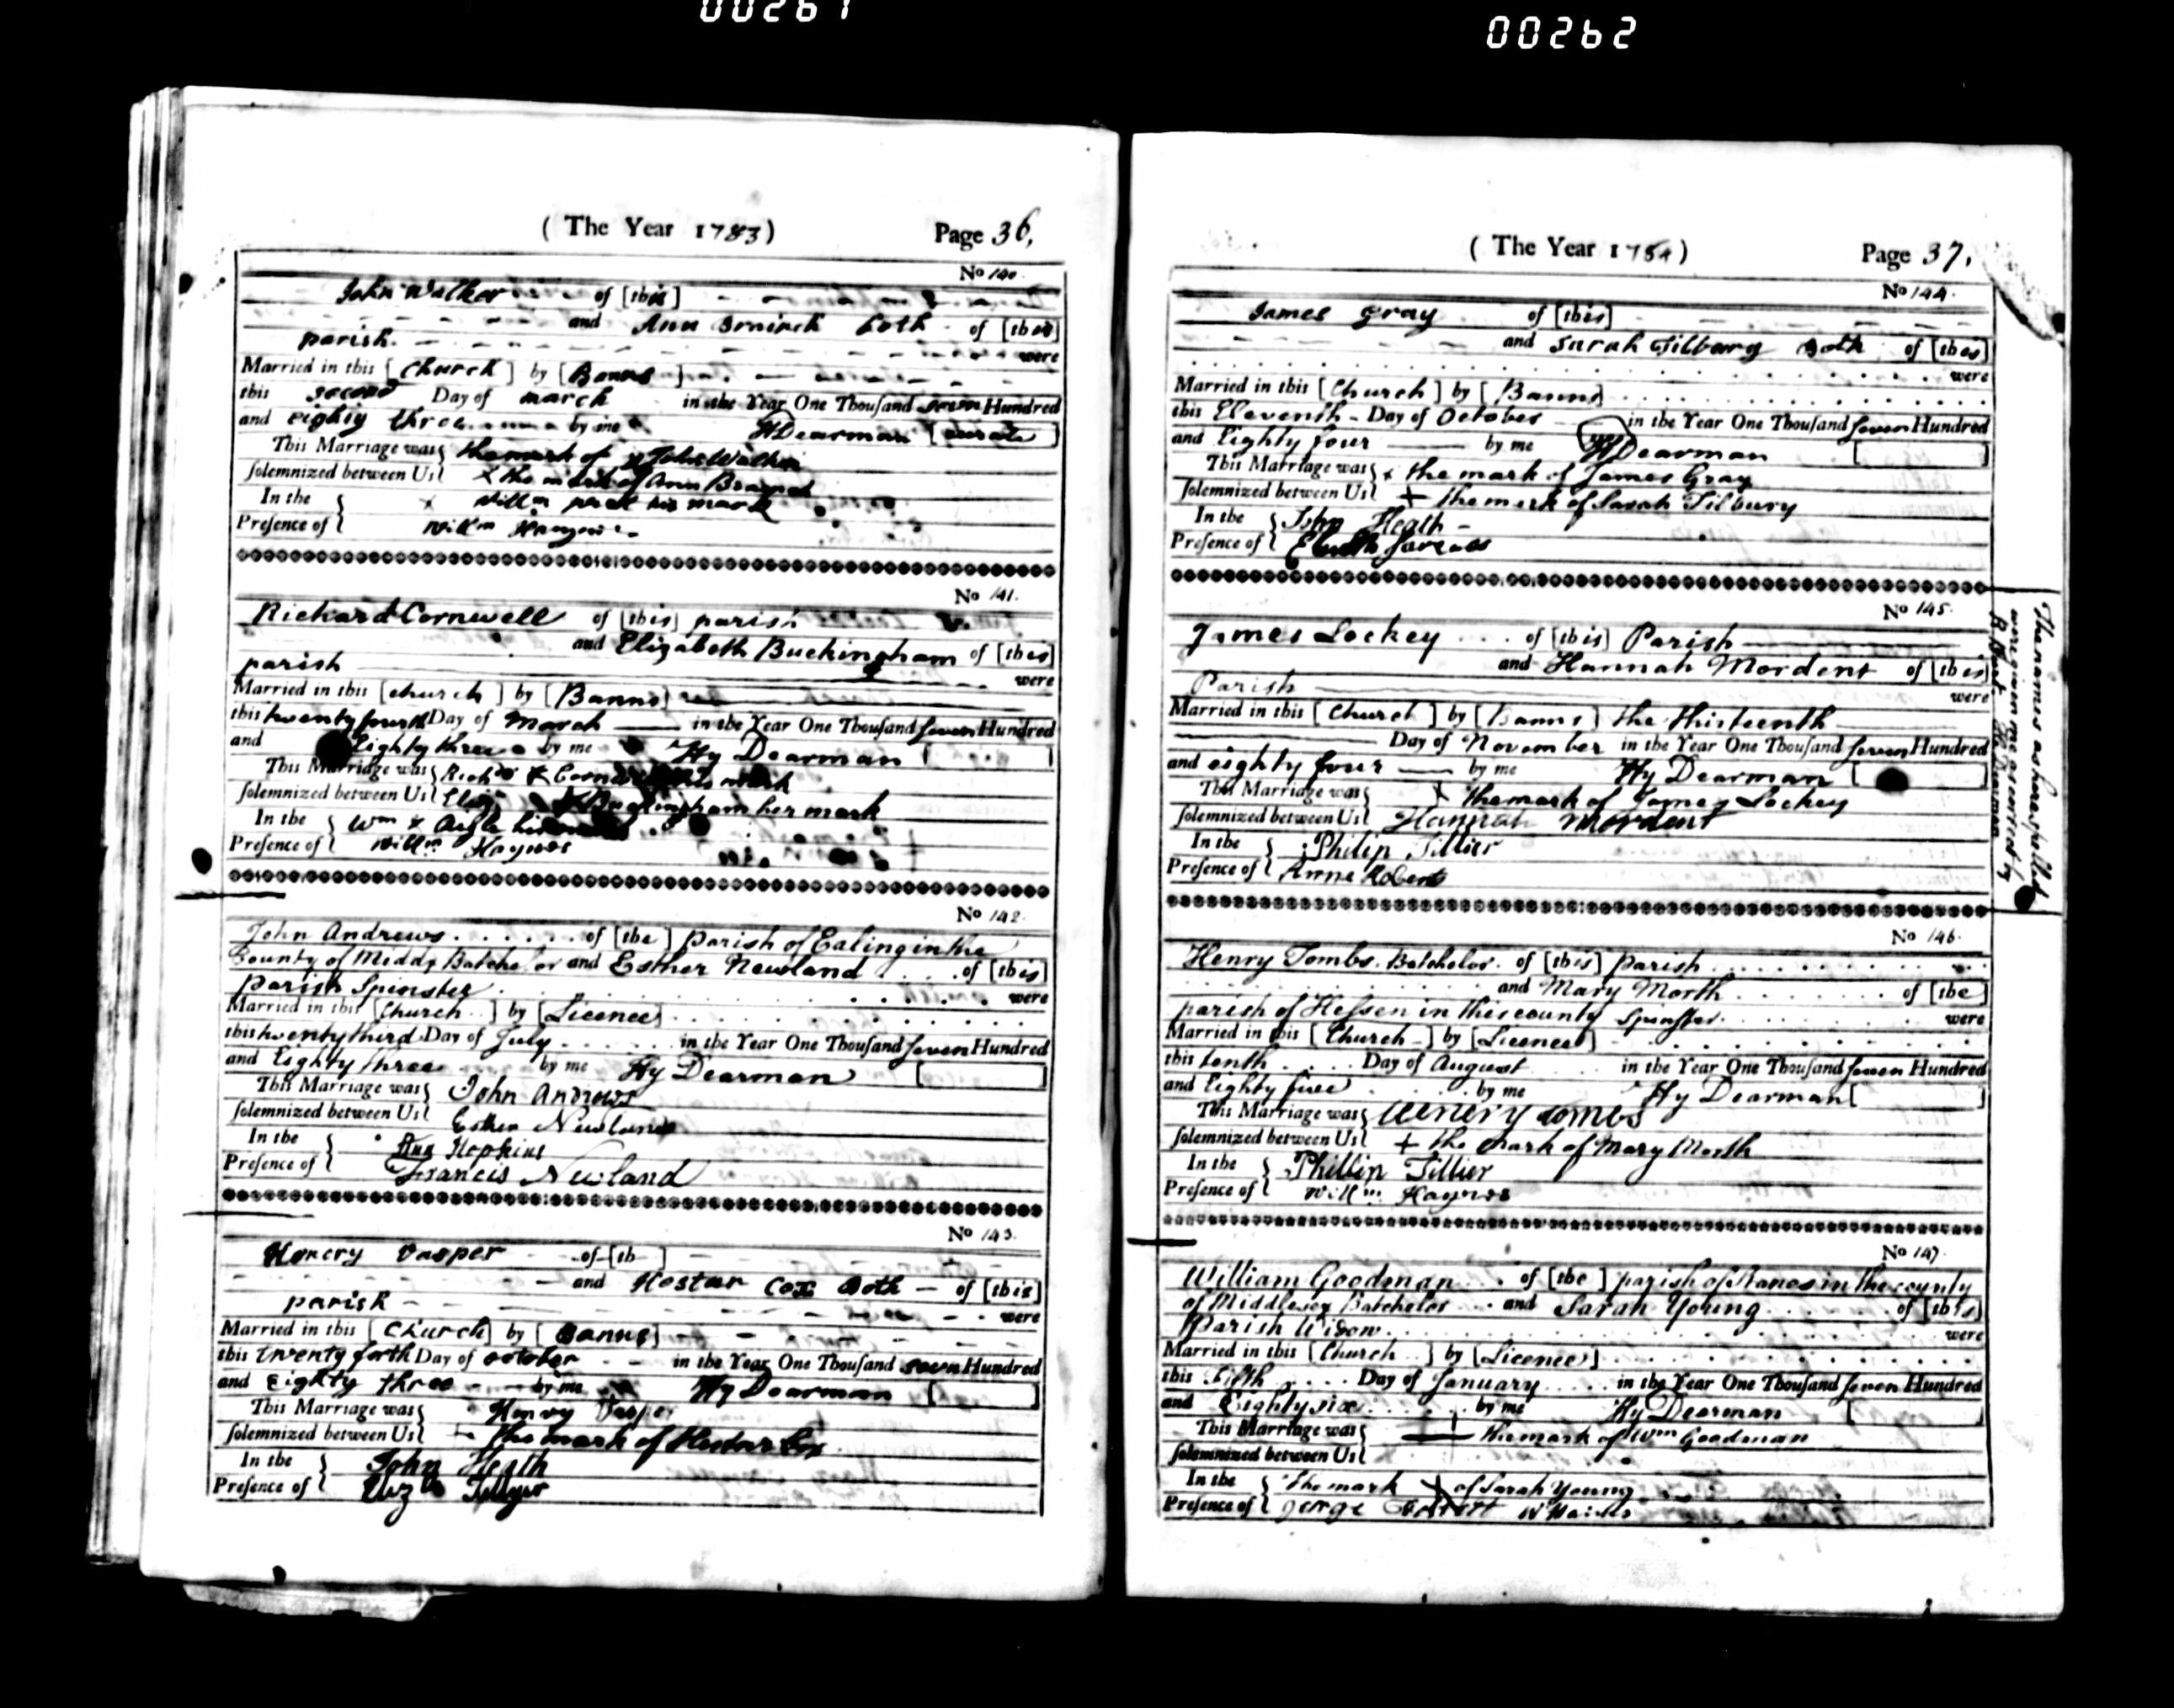 00261
00262
(The Year 1783) Page 36,
No 140.
John Walker of [this]
and Ann both of [this]
parish. were
Married in this [Church] by [Banns]
this second Day of march in the Year One Thousand seven Hundred
and eighty three by me HDearman [curate]
This Marriage was the mark of x John Walker
solemnized between Us x the mark of Ann
In the x Willm his mark
Presence of Willm
No 141.
Richard Cornwell of [this] parish
and Elizabeth Buckingham of [this]
parish were
Married in this [church] by [Banns]
this twenty fourth Day of March in the Year One Thousand seven Hundred
and Eighty three by me Hy Dearman [ ]
This Marriage was Richd x his mark
solemnized between Us Eliz x Buckingham her mark
In the Wm x
Presence of Willm Haynes
No 142.
John Andrews of [the] parish of Ealing in the
County of Middx Batchelor and Esther Newland of [this]
parish Spinster were
Married in this [Church] by [Licence]
this twenty third Day of July in the Year One Thousand seven Hundred
and Eighty three by me Hy Dearman [ ]
This Marriage was John Andrews
solemnized between Us Esther Newland
In the Hopkins
Presence of Francis Newland
No 143.
Henery Vasper of [th ]
and Hestar Cox Both of [this]
parish were
Married in this [Church] by [Banns]
this twenty forth Day of october in the Year One Thousand seven Hundred
and Eighty three by me Hy Dearman [ ]
This Marriage was Henry
solemnized between Us the mark of Hestar Cox
In the John Heath
Presence of
(The Year 1784) Page 37,
No 144.
James Gray of [this]
and Sarah Tilbury Both of [this]
were
Married in this [Church] by [Banns]
this Eleventh Day of October in the Year One Thousand seven Hundred
and Eighty four by me HyDearman [ ]
This Marriage was x the mark of James Gray
solemnized between Us + the mark of Sarah Tilbury
In the John Heath
Presence of
No 145.
James Lockey of [this] Parish
and Hannah Mordent of [this]
Parish were
Married in this [Church] by [Banns] the thirteenth
Day of November in the Year One Thousand seven Hundred
and eighty four by me Hy Dearman [ ]
This Marriage was x the mark of James Lockey
solemnized between Us Hannah Mordent
In the Philip Tillier
Presence of Anne Roberts
The names as here spelled
were given me as entered by
Dearman
No 146.
Henry Tombs. Batchelor. of [this] parish
and Mary North of [the]
parish of Hessen in this county Spinster were
Married in this [Church] by [Licence]
this tenth Day of August in the Year One Thousand seven Hundred
and Eighty five by me Hy Dearman [ ]
This Marriage was Henery tombs
solemnized between Us + the mark of Mary North
In the Phillip Tillier
Presence of Willm Haynes
No 147
William Goodman of [the] parish of Stanes in the county
of Middlesex Batchelor and Sarah Young of [this]
Parish Widow were
Married in this [Church] by [Licence]
this fifth Day of January in the Year One Thousand seven Hundred
and Eighty six by me Hy Dearman [ ]
This Marriage was the mark of Wm Goodman
solemnized between Us
In the the mark x of Sarah Young
Presence of